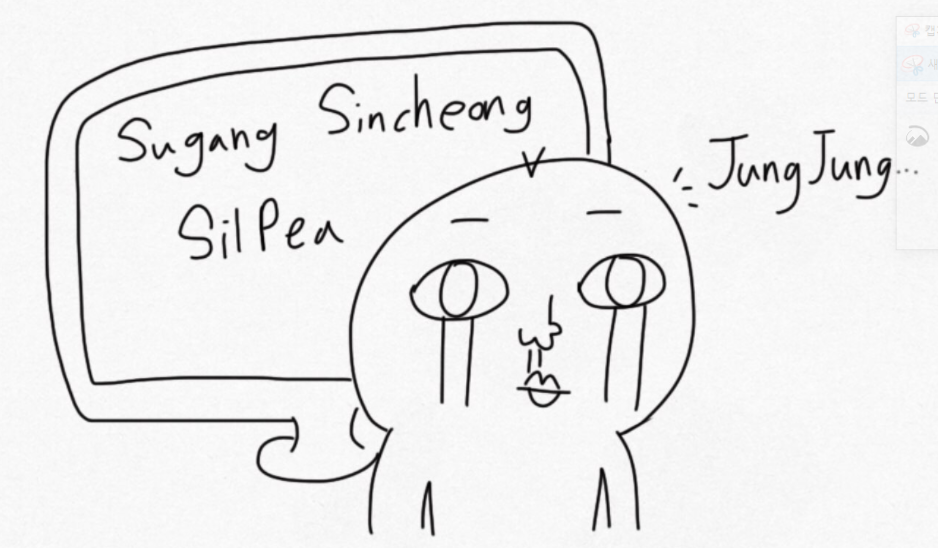 Sugang Sincheong
SilPea
JungJung...